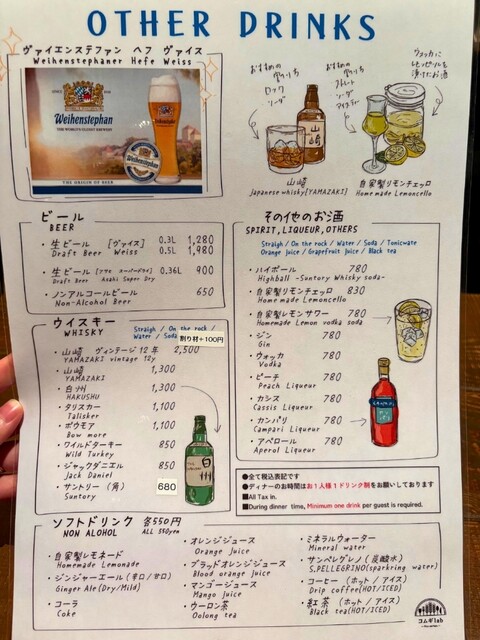 OTHER DRINKS
ヴァイエンステファン ヘフ ヴァイス
Weihenstephaner Hefe Weiss
Weihenstephan
THE WORLD'S OLDEST BREWERY
THE ORIGIN OF BEER
おすすめの割り方
ロック
ソーダ
おすすめの割り方
ストレート
ソーダ
アイスティー
ウォッカに
レモンピールを
漬けたお酒
山崎
Japanese whisky[YAMAZAKI]
自家製リモンチェッロ
Homemade Lemoncello
ビール
BEER
・生ビール [ヴァイス] 0.3L 1,280
Draft Beer Weiss 0.5L 1,980
・生ビール [アサヒ スーパードライ] 0.36L 900
Draft Beer Asahi Super Dry
・ノンアルコールビール 650
Non-Alcohol Beer
ウイスキー
WHISKY
Straigh / On the rock /
Water / Soda
割り材+100円
・山崎 ヴィンテージ12年 2,500
YAMAZAKI vintage 12y
・山崎 1,300
YAMAZAKI
・白州 1,300
HAKUSHU
・タリスカー 1,100
Talisker
・ボウモア 1,100
Bow more
・ワイルドターキー 850
Wild Turkey
・ジャックダニエル 850
Jack Daniel
・サントリー (角) 680
Suntory
白州
その他のお酒
SPIRIT,LIQUEUR,OTHERS
Straigh / On the rock / Water / Soda / Tonicwate
Orange juice / Grapefruit juice / Black tea
・ハイボール 780
Highball -Suntory Whisky soda-
・自家製リモンチェッロ 830
Homemade Lemoncello
・自家製レモンサワー 780
Homemade Lemon vodka soda
・ジン 780
Gin
・ウォッカ 780
Vodka
・ピーチ 780
Peach Liqueur
・カシス 780
Cassis Liqueur
・カンパリ 780
Campari Liqueur
・アペロール 780
Aperol Liqueur
●全て税込表記です
●ディナーのお時間はお1人様1ドリンク制をお願いしております
■All Tax in.
■During dinner time, Minimum one drink per guest is required.
ソフトドリンク 各550円
NON ALOHOL ALL 550yen
・自家製レモネード
Homemade Lemonade
・ジンジャーエール(辛口/甘口)
Ginger Ale(Dry/Mild)
・コーラ
Coke
・オレンジジュース
Orange juice
・ブラッドオレンジジュース
Blood orange juice
・マンゴージュース
Mango juice
・ウーロン茶
Oolong tea
・ミネラルウォーター
Mineral water
・サンペレグレノ(炭酸水)
S.PELLEGRINO(sparkring water)
・コーヒー (ホット / アイス)
Drip coffee(HOT/ICED)
・紅茶 (ホット / アイス)
Black tea(HOT/ICED)
コムギlab